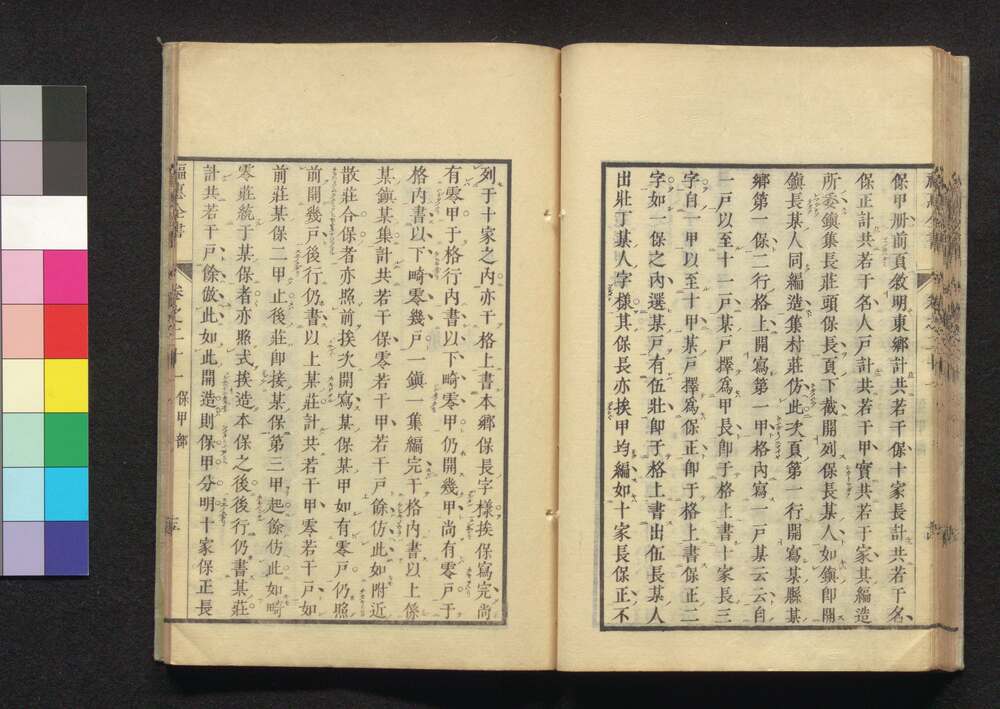 保甲册前頁敘明東鄉計共若干保十家長計共若干名
保正計共若干名人戸計共若干甲實共若干家其編造
所委鎭集長莊頭保長頁下截開列保長某人如鎭卽開
鎭長某人同編造集村莊仿此次頁第一行開寫某縣某
鄉第一保二行格上開寫第一甲格內寫一戸某云云自
一戸以至十一戸某戸擇爲甲長卽于格上書十家長三
字自一甲以至十甲某戸擇爲保正卽于格上書保正二
字如一保之內選某戸有伍壯卽于格上書出伍長某人
出壯丁某人字樣其保長亦挨甲均編如十家長保正不
列于十家之內亦于格上書本鄉保長字樣挨保寫完尚
有零甲于格行內書以下畸零甲仍開幾甲尚有零戸于
格內書以下畸零幾戸一鎭一集編完于格內書以上係
某鎭某集計共若干保零若干甲若干戸餘仿此如附近
散莊合保者亦照前挨次開寫某保某甲如有零戸仍照
前開幾戸後行仍書以上某莊計共若干甲零若干戸如
前莊某保二甲止後莊卽接某保第三甲起餘仿此如畸
零莊統于某保者亦照式挨造本保之後後行仍書某莊
計共若干戸餘倣此如此開造則保甲分明十家保正長
福惠全書 卷之二十一 保甲部 三